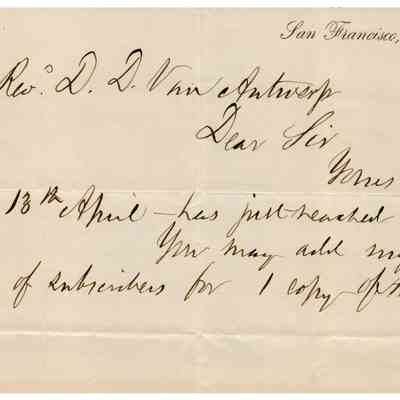 San Francisco,
Rev.ˢ D. D. Van Antwerp
Dear Sir
Yours
13th April – has just reached
You may add my
of subscribers for 1 copy of